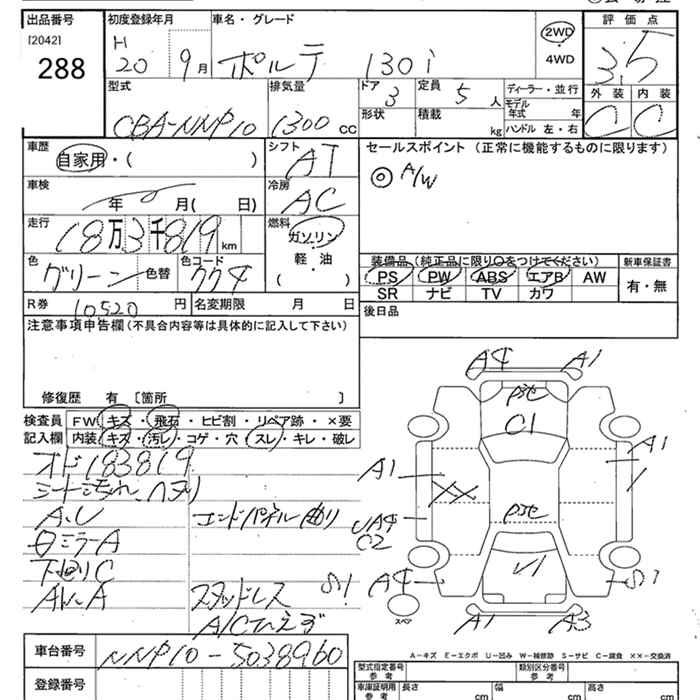 出品番号 初度登録年月 車名・グレード 評価点
[2042] H 2WD
288 20 9月 ポルテ 130i ・ 3.5
4WD
型式 排気量 ドア 定員 ディーラー・並行 外装 内装
3 5人 モデル年式 年
CBA-NNP10 1300cc 形状 積載 kg ハンドル 左・右 C C
車歴 シフト セールスポイント (正常に機能するものに限ります)
自家用・( ) AT ◎ A/W
車検 冷房
年 月( 日) AC
走行 燃料
18万3千819km ガソリン
軽・油
( )
色 色コード 装備品 (純正品に限り○をつけてください) 新車保証書
グリーン 色替 774 PS PW ABS エアB AW 有・無
SR ナビ TV カワ
R券 10520円 名変期限 月 日 後日品
注意事項申告欄 (不具合内容等は具体的に記入して下さい)
修復歴 有 [箇所 ]
検査員 FW キズ・飛石・ヒビ割・リペア跡・×要
記入欄 内装 キズ・汚レ・コゲ・穴・スレ・キレ・破レ
オド183819
シート汚れ、ヘタリ
A、U エンドパネル曲り
ミラーA
下回りC
スタッドレス
A/Cひえず
A4 A1
C1
A1 A1
XX
UA4
C2
A4 S1 S1
U1
スペア
A1 A3
A-キズ E-エクボ U-凹み W-補修跡 S-サビ C-腐食 XX-交換済
車台番号 NNP10-5038960
型式指定番号 類別区分番号
登録番号 車庫証明用参考 長さ cm 幅 cm 高さ cm